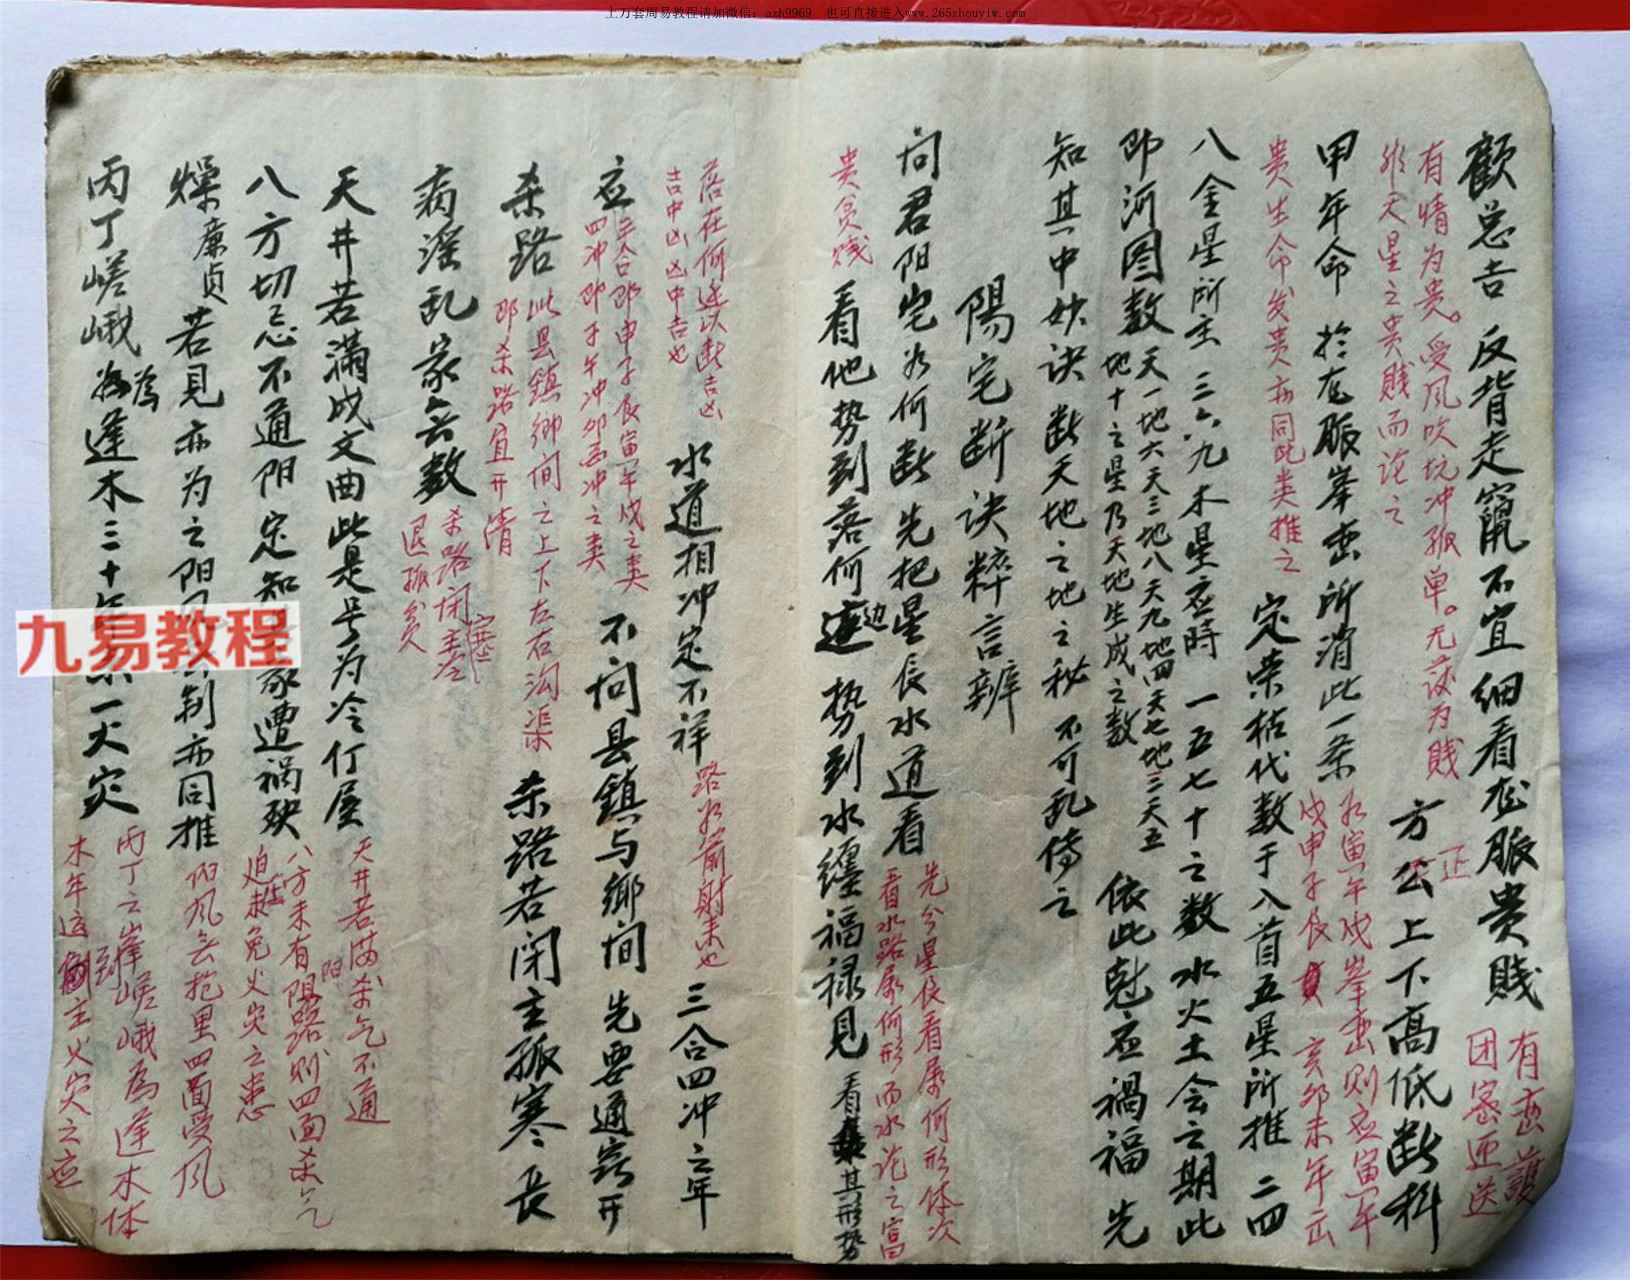 上万套周易教程请加微信：azh9969  也可直接进入www.265zhouyiw.com
顧总吉 反背走竄不宜细看龙脈贵贱
有情为贵。受风吹坑冲孤单。无
为贱
形天星之贵贱而论之
方公上下高低断料
正
甲年命 於龙脈峯峦所消此一条
贵生命发贵亦同此类推之
定荣枯代数于八首五星所推 二四
八金星所主 三六九木星应時 一五七十之数水火土会之期此
即河图数
天一地六天三地八天九地四天七地二天五
地十之星乃天地生成之数
依此
应禍福 先
知其中妙诀断天地之地之秘不可乱傳之
陽宅断诀粹言辨
问君阳宅为何断 先把星辰水道看
先分星辰看属何形体次
看水路属何形而水论之富
贵贫贱
看他势到落何边 势到水纏福禄見
看其形势
落在何边以断吉凶
吉中凶凶中吉也
水道相冲定不祥
路水前射来也
三合四冲之年
应
三合即申子辰寅午戌之类
四冲即子午冲卯酉冲之类
不问县鎮与鄉间 先要通窍开
杀路
此县鎮鄉间之上下左右沟渠
即杀路宜开清
杀路若闭主孤寒 長
病滛乱家无数
杀路闭塞主
退孤贫
天井若满成文曲此是号为冷仃屋
天井若满杀气不通
八方切忌不通阳 定知家遭禍殃
八方未有阳路则四面杀气
迫未免火灾之患
燥廉贞若見亦为之阳
制亦同推
阳风无抱里四面受风
丙丁嵯峨為逢木三十年
一火灾
丙丁之峯嵯峨為逢木体
木年这
主火灾之应
有峦護
团密迎送
九易教程